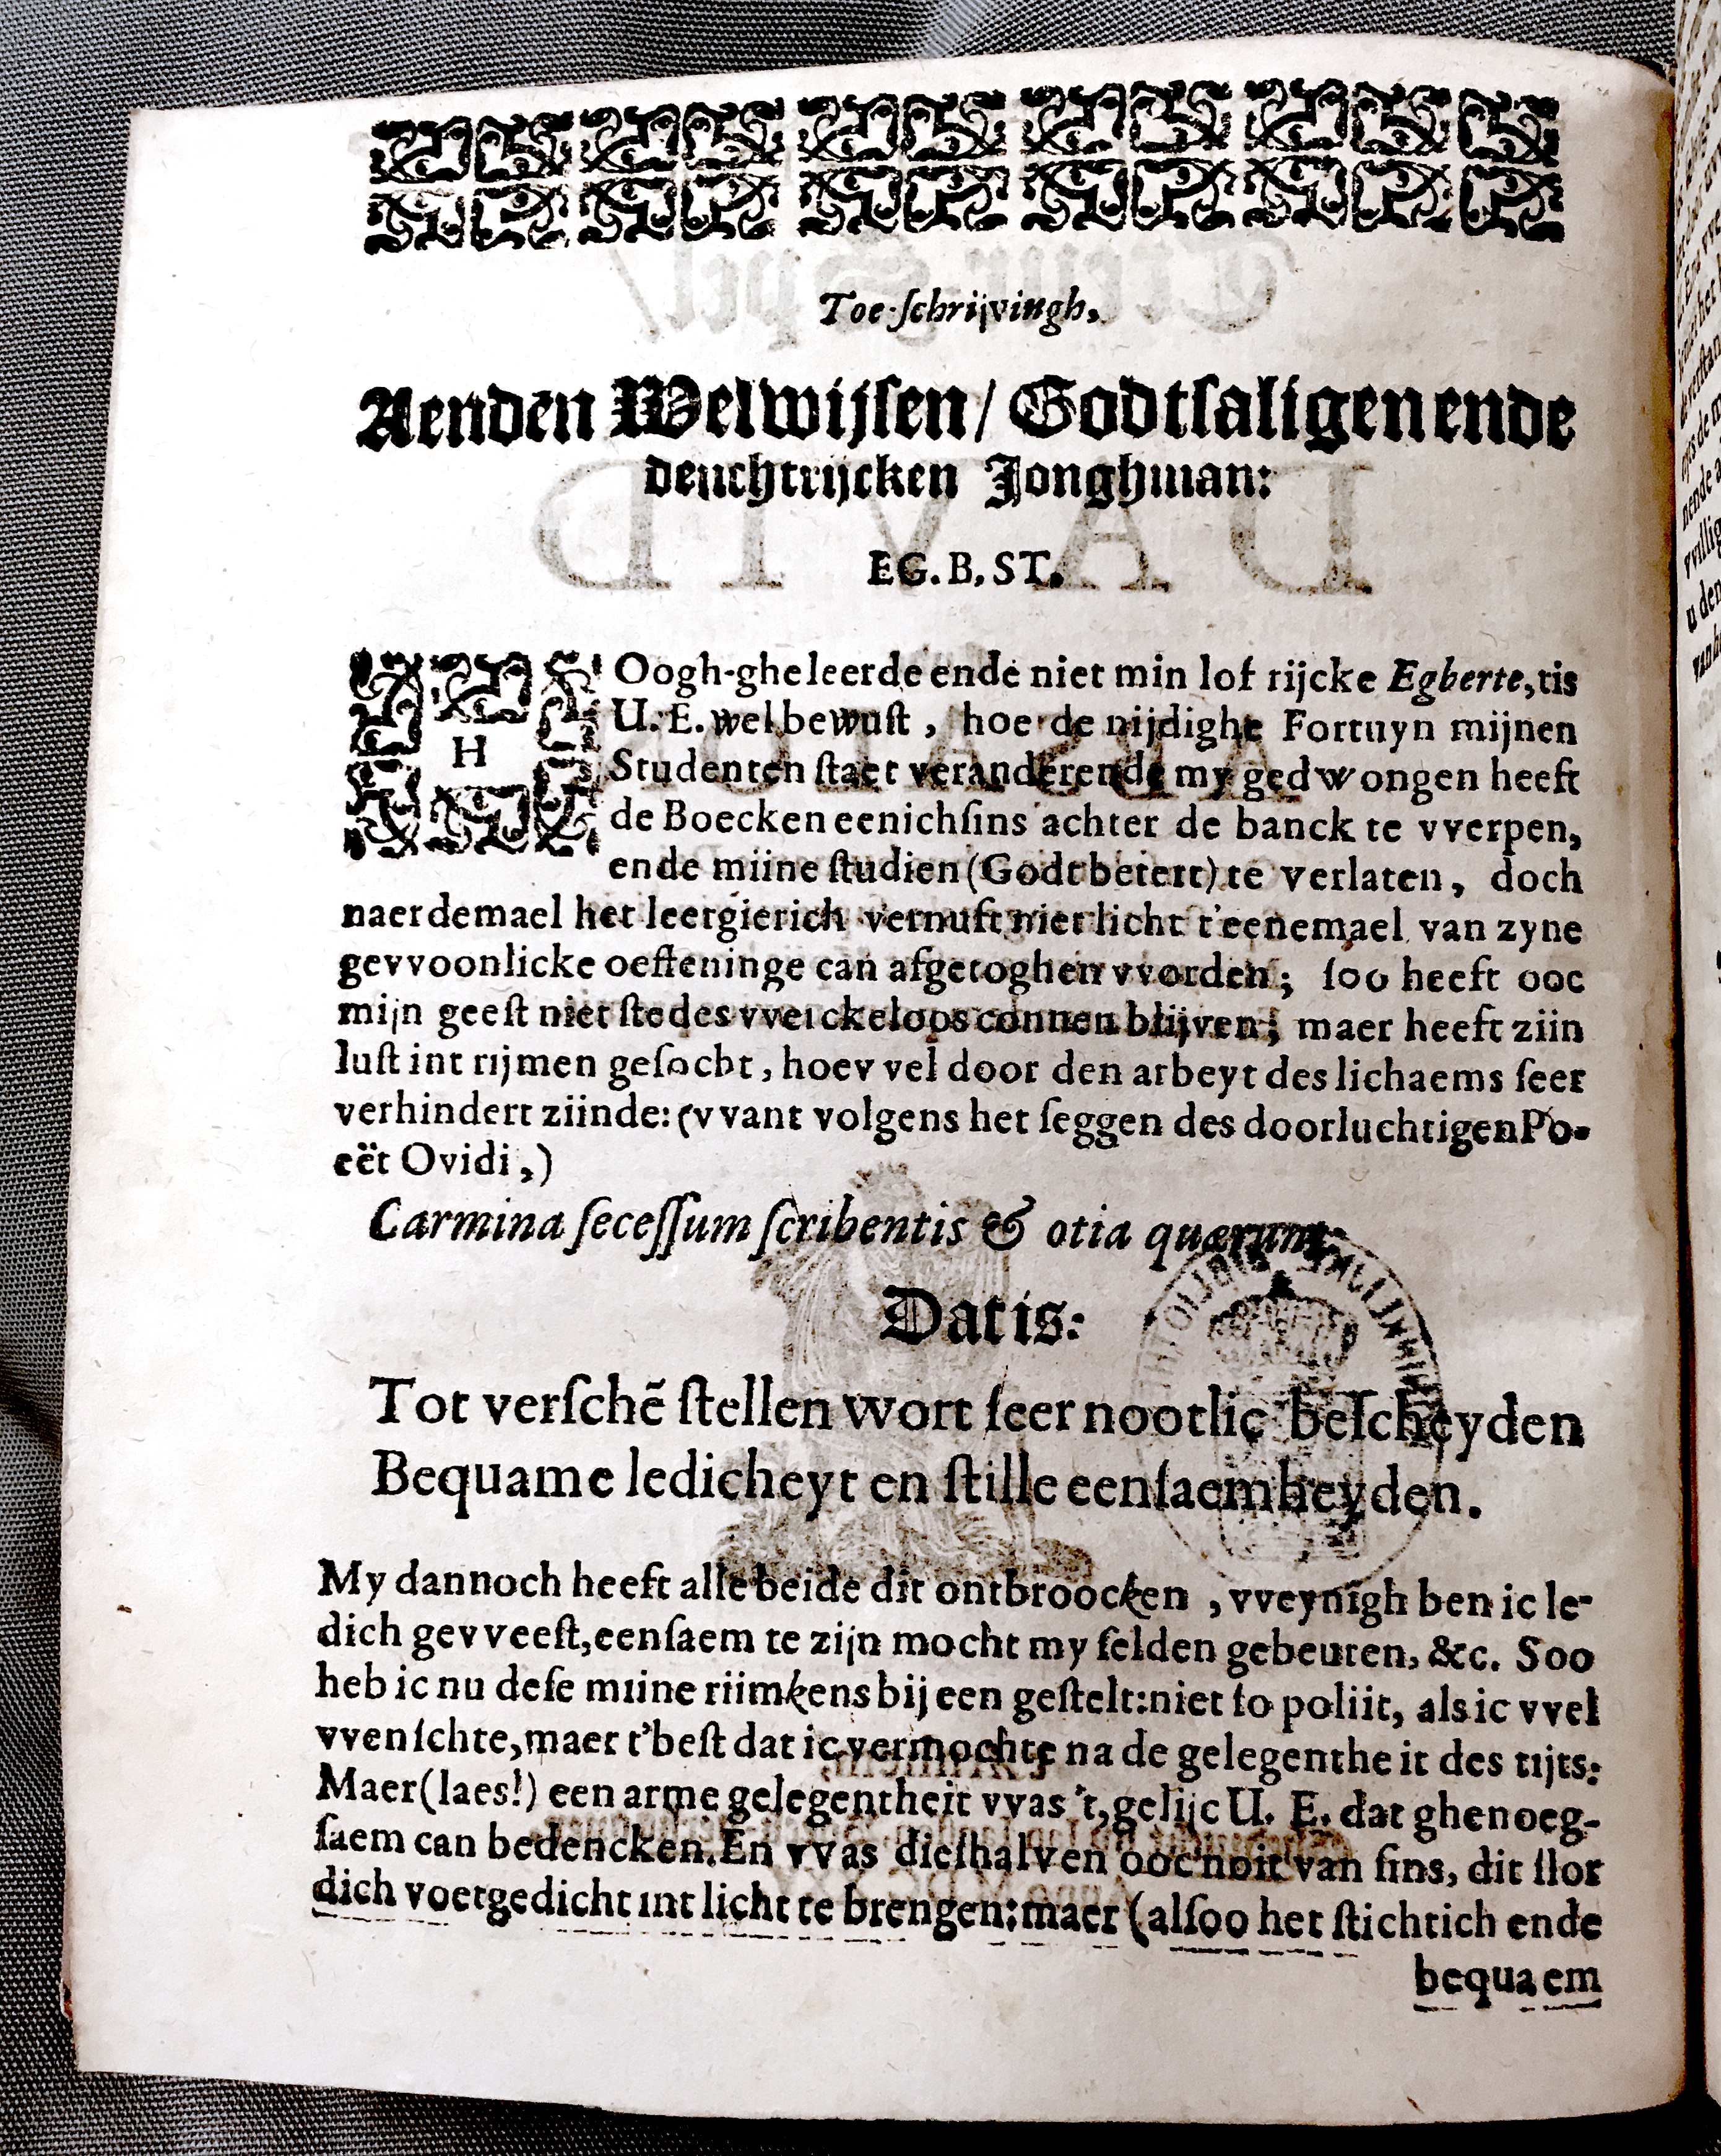 Toe-schrijvingh,
Aenden Welwijsen/ Godtsaligen ende
deuchtrijcken Jonghman:
EG. B. ST.
HOogh-gheleerde ende niet min lof rijcke Egberte, tis
U. E. wel bewust, hoe de nijdighe Fortuyn mijnen
Studenten staet veranderende my gedwongen heeft
de Boecken eenichsins achter de banck te vverpen,
ende miine studien (Godt betert) te verlaten, doch
naerdemael het leergierich vernuft niet licht t'eenemael van zyne
gevvoonlicke oeffeninge can afgetoghen vvorden; soo heeft ooc
mijn geest niet stedes vverckeloos connen blijven; maer heeft ziin
lust int rijmen gesocht, hoevvel door den arbeyt des lichaems seer
verhindert ziinde: (vvant volgens het seggen des doorluchtigen Po-
eët Ovidi,)
Carmina secessum scribentis & otia quærunt.
Dat is:
Tot verschē stellen wort seer nootlic bescheyden
Bequame ledicheyt en stille eensaemheyden.
My dannoch heeft alle beide dit ontbroocken, vveynigh ben ic le-
dich gevveest, eensaem te zijn mocht my selden gebeuren, &c. Soo
heb ic nu dese miine riimkens bij een gestelt: niet so poliit, als ic vvel
vvenschte, maer t'best dat ic vermochte na de gelegentheit des tijts:
Maer (laes!) een arme gelegentheit vvas 't, gelijc U. E. dat ghenoeg-
saem can bedencken. En vvas dieshalven ooc noit van sins, dit slor
dich voetgedicht int licht te brengen: maer (alsoo het stichtich ende
bequaem